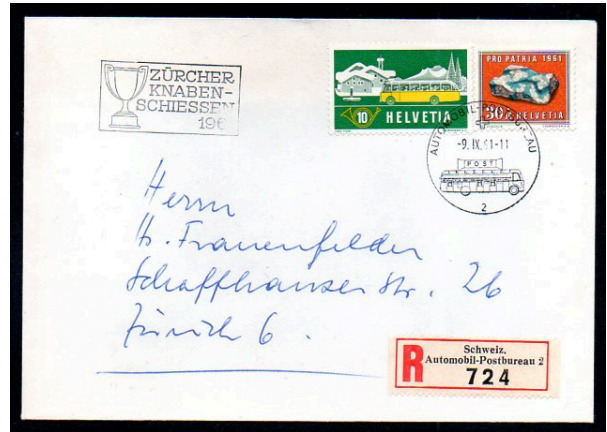 ZÜRCHER
KNABEN-
SCHIESSEN
196
10 HELVETIA
PRO PATRIA 1961
30 HELVETIA
AUTOMOBIL-POSTBUREAU
-9.IX.61-11
POST
2
Herrn
H. Frauenfelder
Schaffhauser Str. 26
Zürich 6.
R
Schweiz.
Automobil-Postbureau 2
724